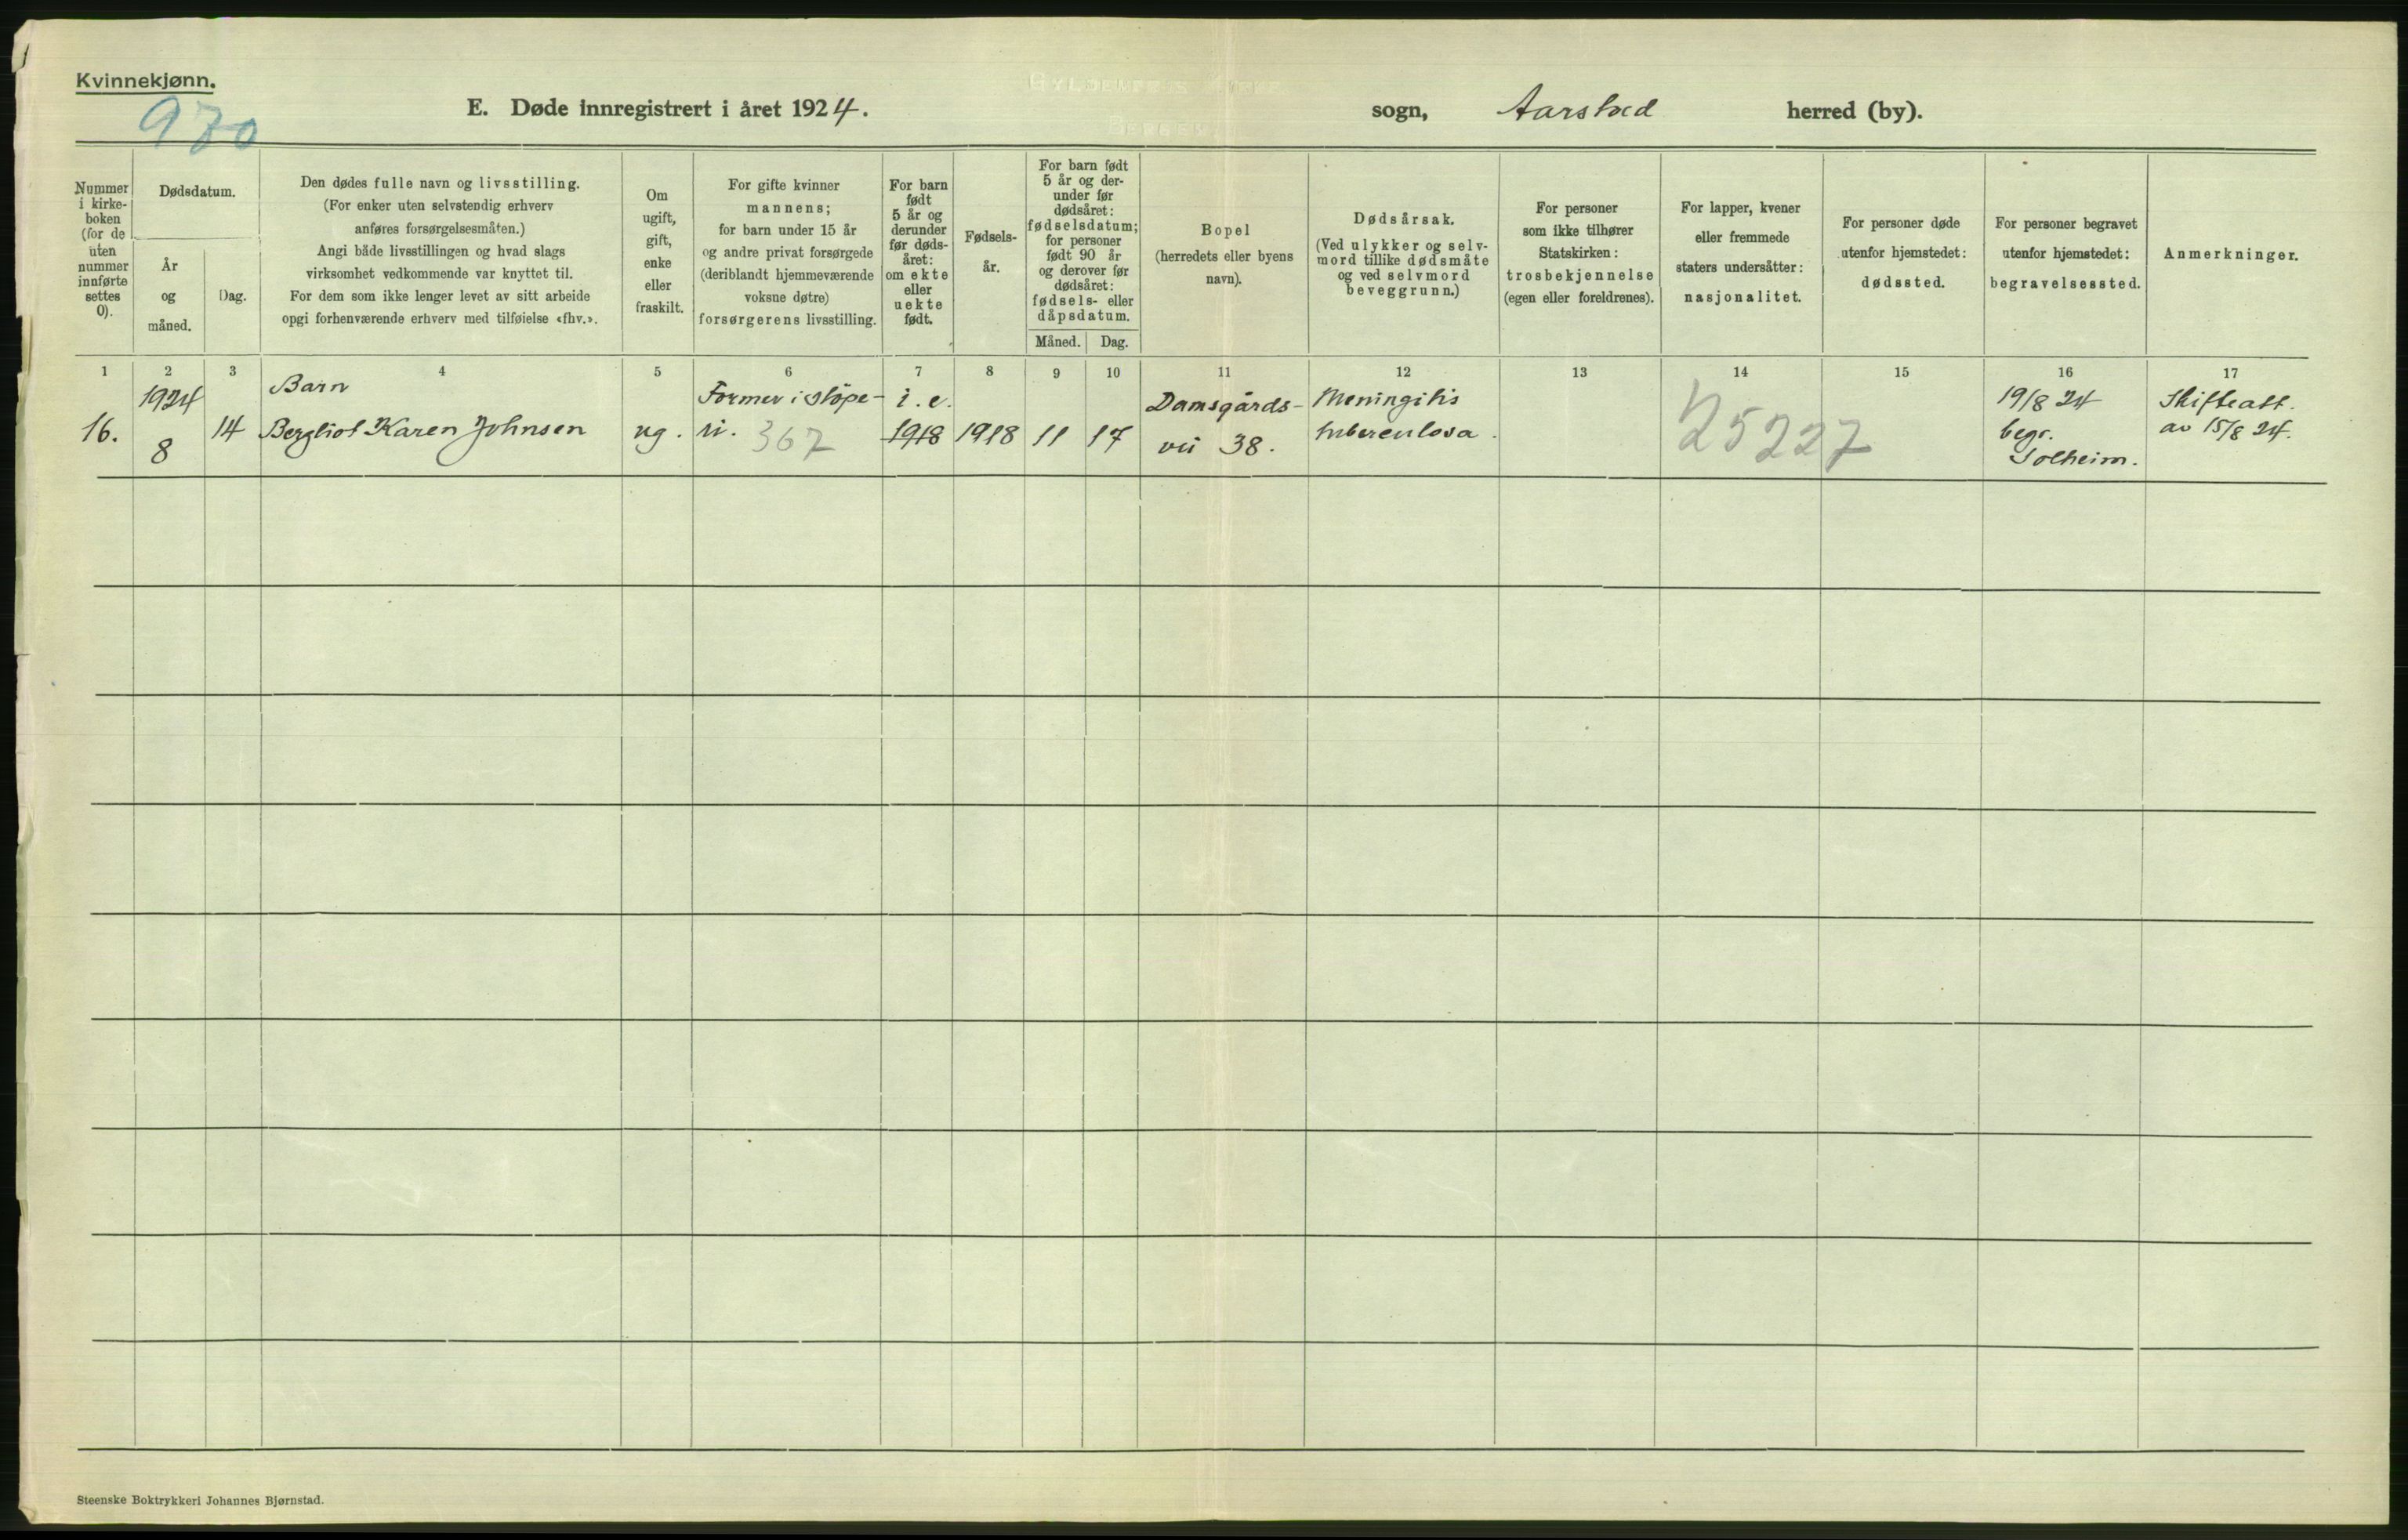 Kvinnekjønn.
970
E. Døde innregistrert i året 1924. sogn, Aarstad herred (by).
Nummer
i kirke-
boken
(for de
uten
nummer
innførte
settes
0).
Dødsdatum.
År
og
måned.
Dag.
Den dødes fulle navn og livsstilling.
(For enker uten selvstendig erhverv
anføres forsørgelsesmåten.)
Angi både livsstillingen og hvad slags
virksomhet vedkommende var knyttet til.
For dem som ikke lenger levet av sitt arbeide
opgi forhenværende erhverv med tilføielse «fhv.».
Om
ugift,
gift,
enke
eller
fraskilt.
For gifte kvinner
mannens;
for barn under 15 år
og andre privat forsørgede
(deriblandt hjemmeværende
voksne døtre)
forsørgerens livsstilling.
For barn
født
5 år og
derunder
før døds-
året:
om ekte
eller
uekte
født.
Fødsels-
år.
For barn født
5 år og der-
under før
dødsåret:
fødselsdatum;
for personer
født 90 år
og derover før
dødsåret:
fødsels- eller
dåpsdatum.
Måned. Dag.
Bopel
(herredets eller byens
navn).
Dødsårsak.
(Ved ulykker og selv-
mord tillike dødsmåte
og ved selvmord
beveggrunn.)
For personer
som ikke tilhører
Statskirken:
trosbekjennelse
(egen eller foreldrenes).
For lapper, kvener
eller fremmede
staters undersåtter:
nasjonalitet.
For personer døde
utenfor hjemstedet:
dødssted.
For personer begravet
utenfor hjemstedet:
begravelsessted.
Anmerkninger.
1 2 3 4 5 6 7 8 9 10 11 12 13 14 15 16 17
16.
1924
8
14
Barn
Bergliot Karen Johnsen
ug.
Former i støpe-
ri. 367
i. e.
1918
1918
11
17
Damsgårds-
vei 38.
Meningitis
tuberculosa.
25227
19/8 24
begr.
Solheim.
Skifteatt.
av 15/8 24.
Steenske Boktrykkeri Johannes Bjørnstad.